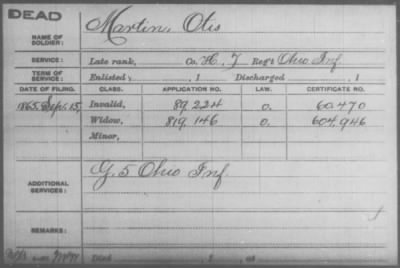 DEAD
NAME OF SOLDIER: Martin, Otis
SERVICE: Late rank, Co. H, 7 Reg't Ohio Inf
TERM OF SERVICE: Enlisted , 1 Discharged , 1
DATE OF FILING. CLASS. APPLICATION NO. LAW. CERTIFICATE NO.
1865, Sep. 15, Invalid, 89,224 O. 60,470
Widow, 819,146 O. 604,946
Minor,
ADDITIONAL SERVICES: G. 5 Ohio Inf
REMARKS:
Died , 1 , at